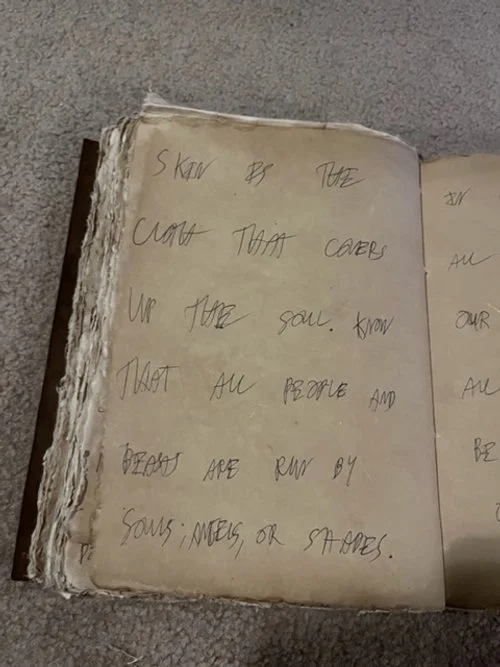 SKIN IS THE
CLOTH THAT COVERS
UP THE SOUL. KNOW
THAT ALL PEOPLE AND
BEASTS ARE RUN BY
SOULS; ANGELS, OR SHADES.
IN
ALL
OUR
ALL
BE